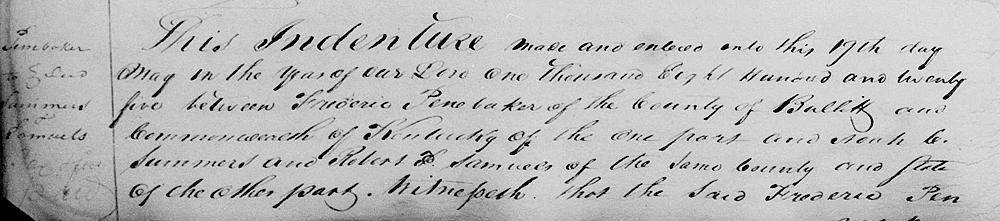 Penebaker
to } Deed
Summers
&
Samuels
This Indenture made and entered into this 19th day
May in the year of our Lord One thousand Eight Hundred and twenty
five between Frederic Penebaker of the County of Bullitt and
Commonwealth of Kentucky of the one part and Noah C.
Summers and Robert F. Samuels of the same County and state
of the other part. Witnesseth. that the said Frederic Pen